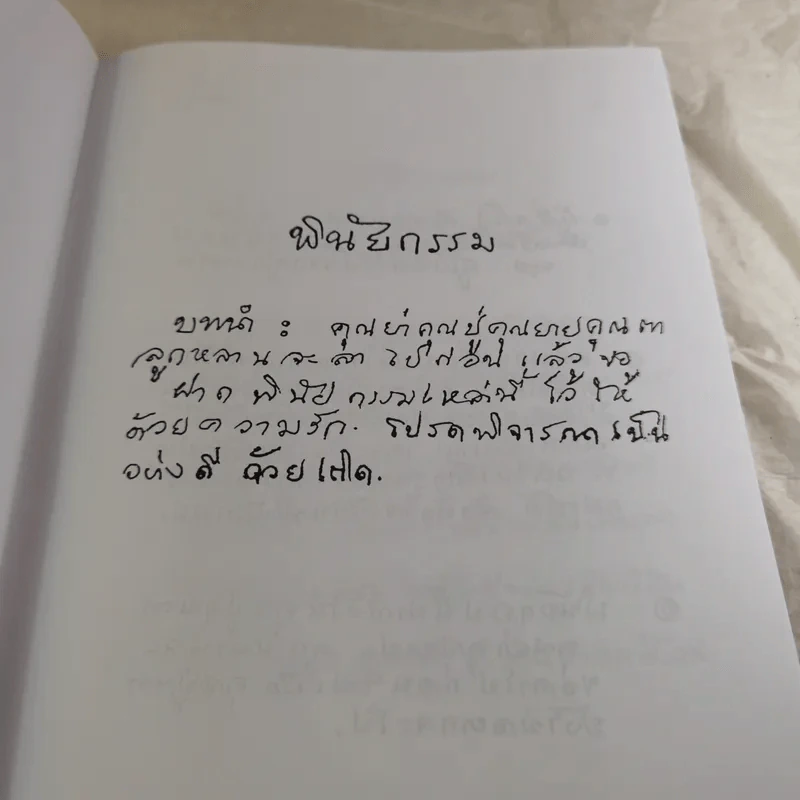 พินัยกรรม
บทนำ : คุณย่าคุณปู่คุณยายคุณตา
ลูกหลานจะลาไปก่อน แล้ว ขอ
ฝาก พินัยกรรมเหล่านี้ ไว้ให้
ด้วยความรัก. โปรดพิจารณาเป็น
อย่างดี ด้วยเถิด.